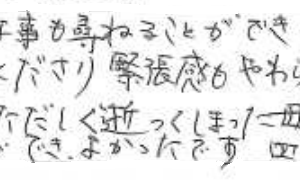 事も尋ねることができ
ださり 緊張感もやわら
ただしく逝ってしまった
でき、よかったです